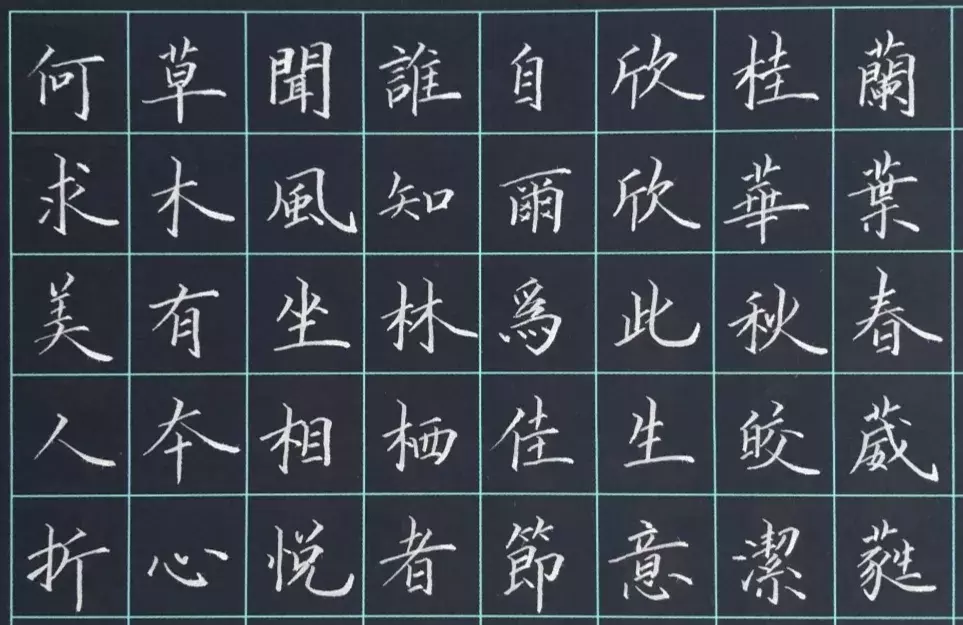 蘭葉春葳蕤
桂華秋皎潔
欣欣此生意
自爾爲佳節
誰知林栖者
聞風坐相悦
草木有本心
何求美人折